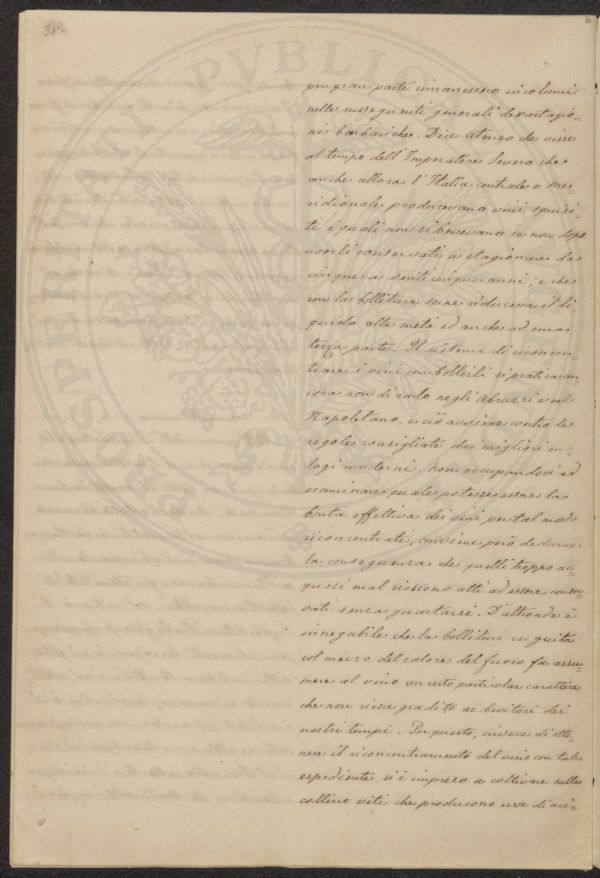 38
per gran parte rimanessero incolumi
nelle susseguenti generali devastagio-
ni barbariche. Dice Ateneo che visse
al tempo dell'Imperatore Severo che
anche allora l'Italia centrale e me-
ridionale producevano vini squisi-
ti i quali non si bevevano se non dopo
averli conservati a stagionare da
cinque a venti cinque anni; e che
con la bollitura se ne riduceva il li-
quido alla metà ed anche ad una
terza parte. Il sistema di riconcen-
trare i vini con bollirli si pratica an-
cora non di rado negli Abruzzi e nel
Napoletano, e ciò avviene contro le
regole consigliate dai migliori eno-
logi moderni. Non occupandoci ad
esaminare quale potesse essere la
bontà effettiva dei vini per tal modo
riconcentrati, conviene però dedurne
la conseguenza che quelli troppo ac-
quosi mal riescono atti ad essere conser-
vati senza guastarsi. D'altronde è
innegabile che la bollitura eseguita
col mezzo del calore del fuoco fa assu-
mere al vino un certo particolar carattere
che non riesce gradito ai bevitori dei
nostri tempi. Per questo, invece di otte-
nere il riconcentramento del vino con tale
espediente si è impreso a coltivare nelle
colline viti che producono uve di aci-
PROSPERITATI PVBLICAE